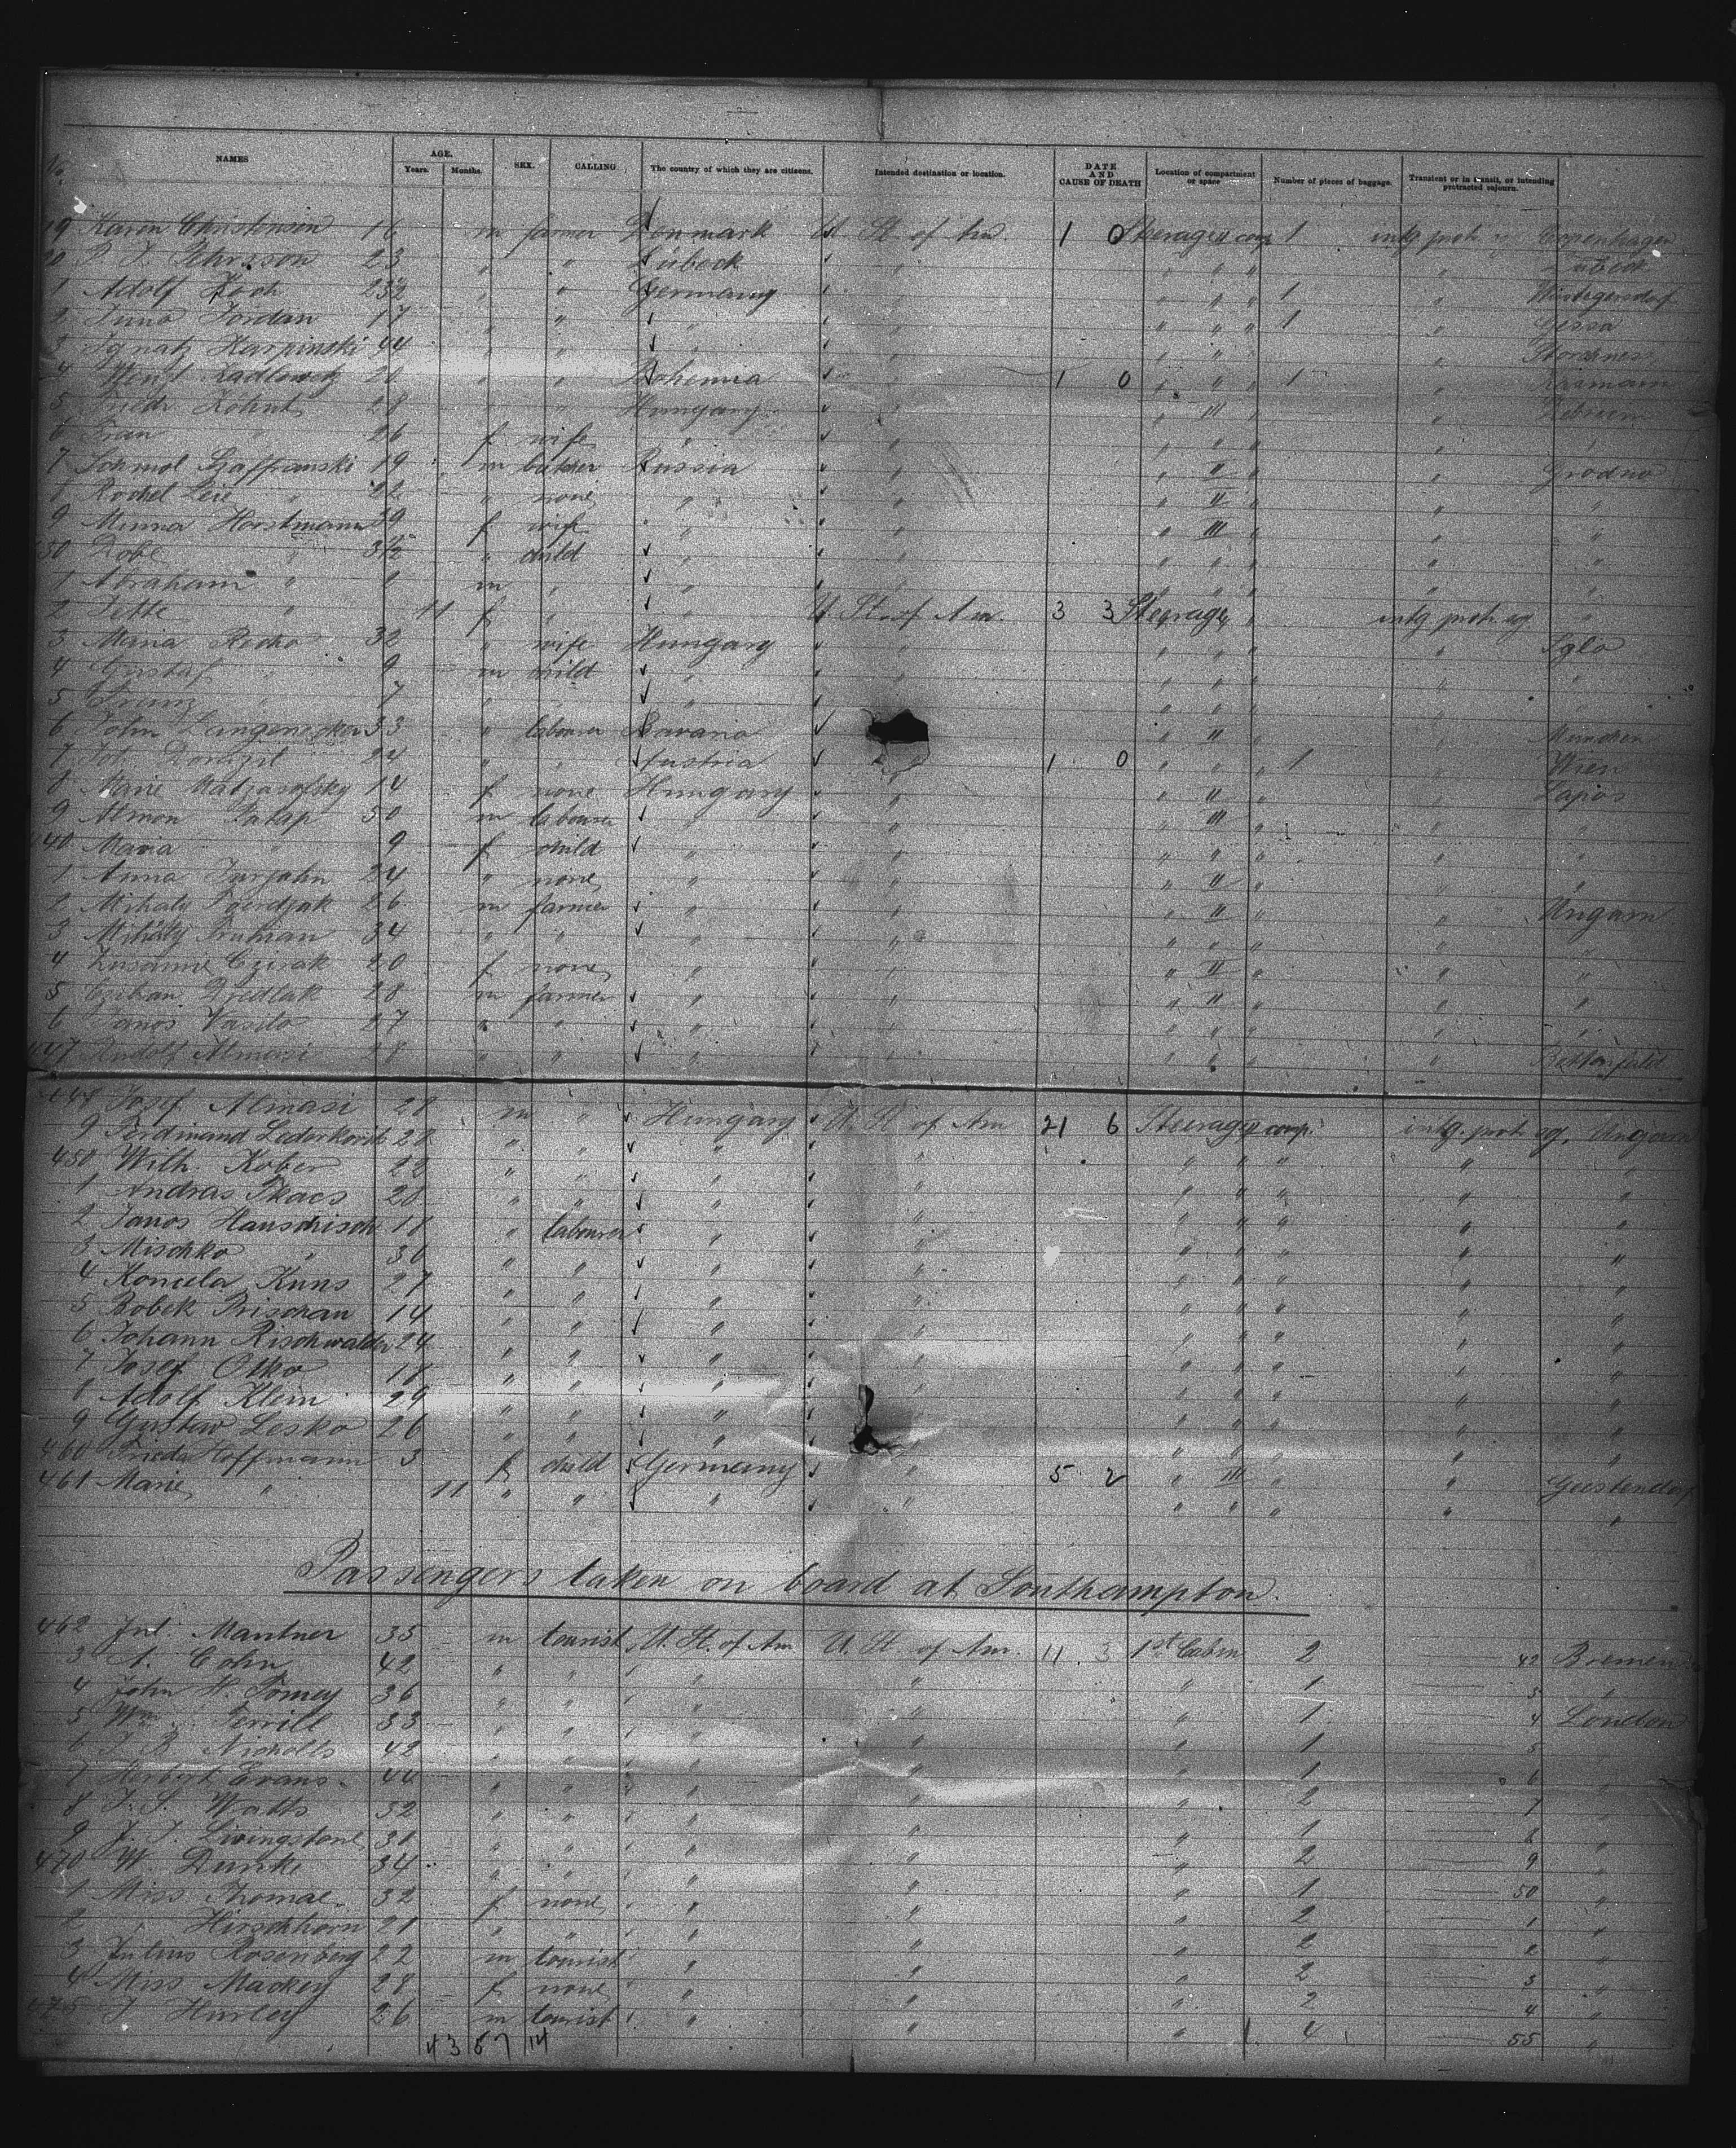 No. NAMES AGE. Years. Months. SEX. CALLING The country of which they are citizens. Intended destination or location. DATE AND CAUSE OF DEATH Location of compartment or space Number of pieces of baggage. Transient or in transit, or intending protracted sojourn.
19 Karen Christensen 16 m farmer Denmark U. St. of Am. 1 0 Steerage II comp 1 intg prot Copenhagen
20 23 " " Lübeck " " " " " Lübeck
1 Adolf Koch " " Germany " " " " 1 "
2 Jordan 17 " " " " " " " 1 " Lissa
3 Ignatz Karpinski 44 " " " " " " "
4 " " Bohemia " 1 0 " " " 1 "
5 Friedr Kohut 28 " " Hungary " " III " "
6 Frau " 26 f wife " " " " " " "
7 Schmol Szaffranski 19 m butcher Russia " " II " " Grodno
8 Rochel Leie " 22 " none " " " II " " "
9 Minna Horstmann 39 f wife " " " III " " "
30 Dobe " " child " " " " " " "
1 Abraham " m " " " " " " " "
2 Jette " 11 f " " U. St. of Am. 3 3 Steerage " intg prot. sg. "
3 Maria Redko 32 " wife Hungary " " " " " Iglo
4 Gustaf " 9 m child " " " " " " "
5 Franz " 7 " " " " " " " " "
6 John Langenecker 33 " labourer Bavaria " II " " München
7 Joh. 24 " " Austria 1 0 " " " 1 " Wien
8 Marie Matjasofsky 14 f none Hungary " " II " " Lapos
9 Almon Patap 50 m labourer " " " III " " "
440 Maria " 9 f child " " " " " " "
1 Anna Jurjahn 24 " none " " " II " " "
2 Mihaly 26 m farmer " " " II " " Ungarn
3 Mihaly Truhan 34 " " " " " " " " "
4 Zusanne Czisak 20 f none " " " II " " "
5 Djedlak 28 m farmer " " " II " " "
6 Janos Vasilo 27 " " " " " " " " "
447 Rudolf Almasi 28 " " " " " " " "
448 Josef Almasi 28 m " Hungary U. St of Am 21 6 Steerage II comp. intg. prot sg. Ungarn
9 Ferdinand Lederkovits 28 " " " " " " " " "
450 Wilh. Kober 22 " " " " " " " " "
1 Andras Tkacs 28 " " " " " " " " "
2 Janos Hauschisch 18 " labourer " " " " " " "
3 Mischko " 36 " " " " " " " " "
4 Koncela Kuns 27 " " " " " " " " "
5 Bobek Prischan 14 " " " " " " " " "
6 Johann Rischwalder 24 " " " " " " " " "
7 Josef Otko 18 " " " " " " " " "
8 Adolf Klein 29 " " " " " " " " "
9 Gustav Lesko 26 " " " " " " " " "
460 Frieda Hoffmann 3 f child Germany " 5 2 " III " " Geestendorf
461 Marie " 11 " " " " " " " " "
Passengers taken on board at Southampton.
462 Jul. Mantner 35 m tourist U. St. of Am U. St of Am. 11 3 1st Cabin 2 42 Bremen
3 A. Cohn 42 " " " " " 1 3 "
4 John H. Tomey 36 " " " " " 1 4 London
5 Wm. Terrill 33 " " " " " 1 5 "
6 J. B. Nicholls 42 " " " " " 1 6 "
7 Herbert Evans 44 " " " " " 2 7 "
8 J. S. Watts 52 " " " " " 1 8 "
9 J. T. Livingstone 31 " " " " " 2 9 "
470 W. Dunke 34 " " " " " 1 50 "
1 Miss Thomae 32 f none " " " 2 1 "
2 " Hirschhorn 21 " " " " " 2 2 "
3 Julius Rosenberg 22 m tourist " " " 2 3 "
4 Miss Mackey 28 f none " " " 2 4 "
475 J. Hurley 26 m tourist " " " 4 55 "
43 57 14